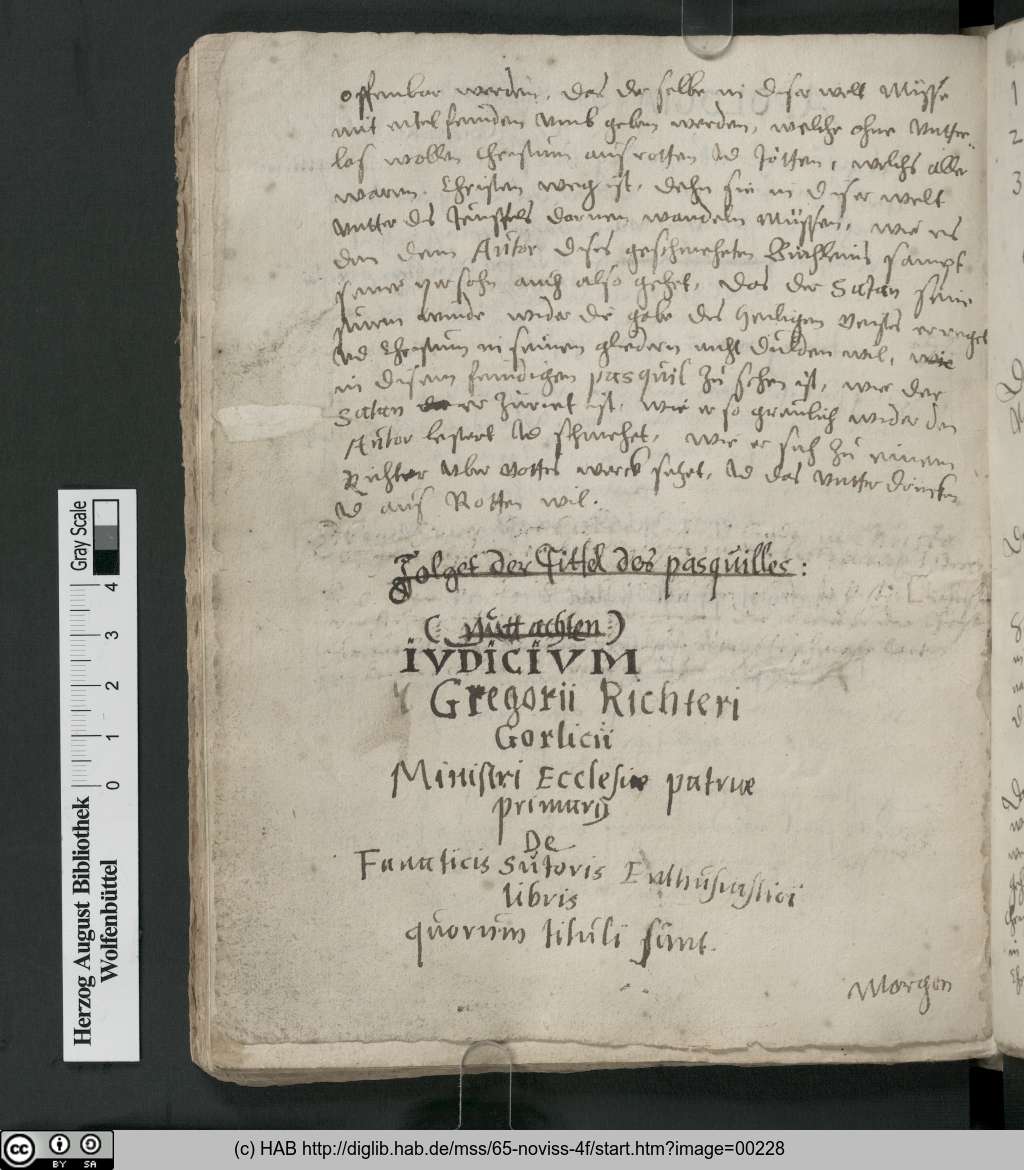 offenbar werden, das der selbe in diser welt Müsse
mit eitel feinden umb geben werden, welche ohne Unter..
las wollen Christum ausrotten vnd Tötten, welchs aller
waren Christen weg ist, dehn sie in diser welt
vntter des Teüffels dornen wandeln Müssen, wie es
dan dem Autor dises geschmeheten Büchleins sampt
seiner person auch also gehet, das der Satan seine
winde wider die gabe des Heiligen Geistes erreget
vnd Christum in seinen gliedern nicht dulden wil, wie
in disem feindigen pasquil zu sehen ist, wie der
Satan er zürnet ist, wie er so greulich wider den
Autor lestert vnd schmehet, wie er sich zu einem
Richter vber Gottes werck setzet, vnd das vntter drücken
vnd aus Rotten wil.
Folget der Tittel des pasquilles:
( achten )
IVDICIVM
Gregorii Richteri
Gorlicii
Ministri Ecclesiæ patriæ
primarij
De
Fanaticis Sutoris Enthusiastici
libris
quorum tituli sunt.
Morgen
Gray Scale
4
3
2
1
0
Herzog August Bibliothek
Wolfenbüttel
1
2
3
cc BY SA
(c) HAB http://diglib.hab.de/mss/65-noviss-4f/start.htm?image=00228